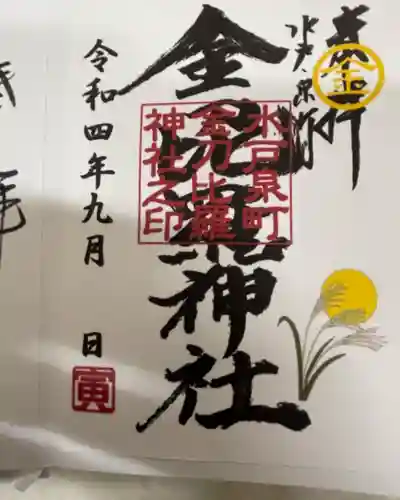 奉拝
水戸・泉町
金
金刀比羅神社
水戸泉町
金刀比羅
神社之印
令和四年九月 日
寅